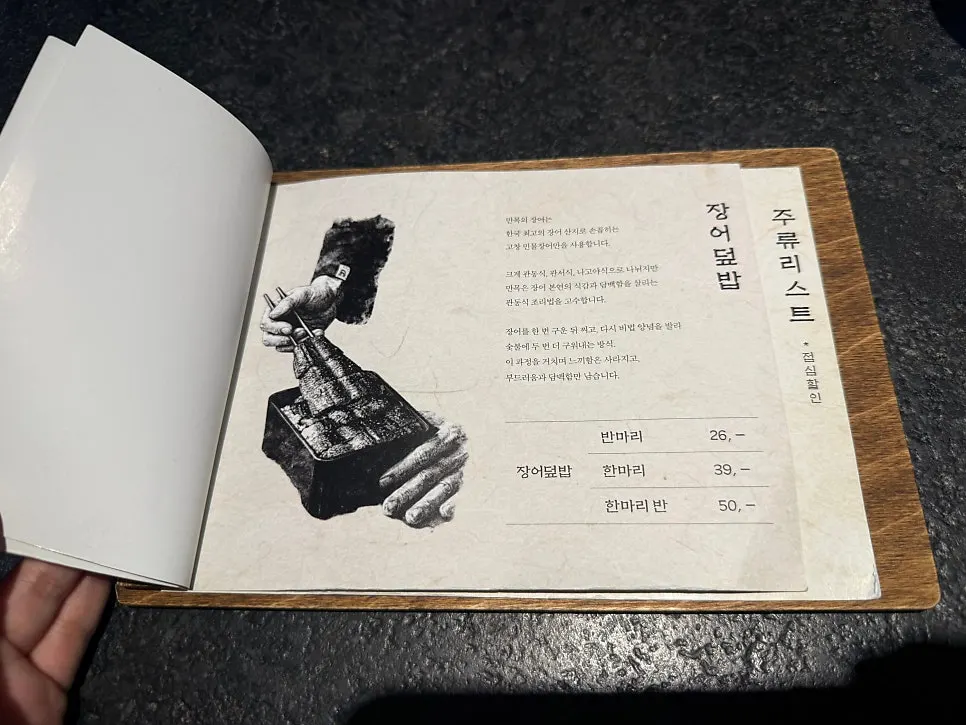 장어덮밥
만목의 장어는
한국 최고의 장어 산지로 손꼽히는
고창 민물장어만을 사용합니다.
크게 관동식, 관서식, 나고야식으로 나뉘지만
만목은 장어 본연의 식감과 담백함을 살리는
관동식 조리법을 고수합니다.
장어를 한 번 구운 뒤 찌고, 다시 비법 양념을 발라
숯불에 두 번 더 구워내는 방식.
이 과정을 거치며 느끼함은 사라지고,
부드러움과 담백함만 남습니다.
장어덮밥
반마리 26,–
한마리 39,–
한마리 반 50,–
주류리스트
*점심할인